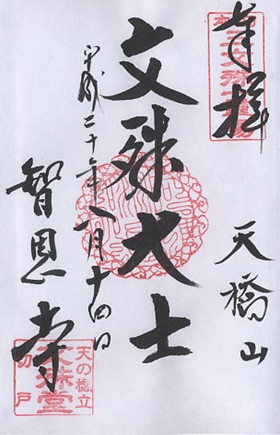 奉拝
天橋山
文殊大士
平成二十年八月十四日
智恩寺
天の橋立
文殊堂
切戸